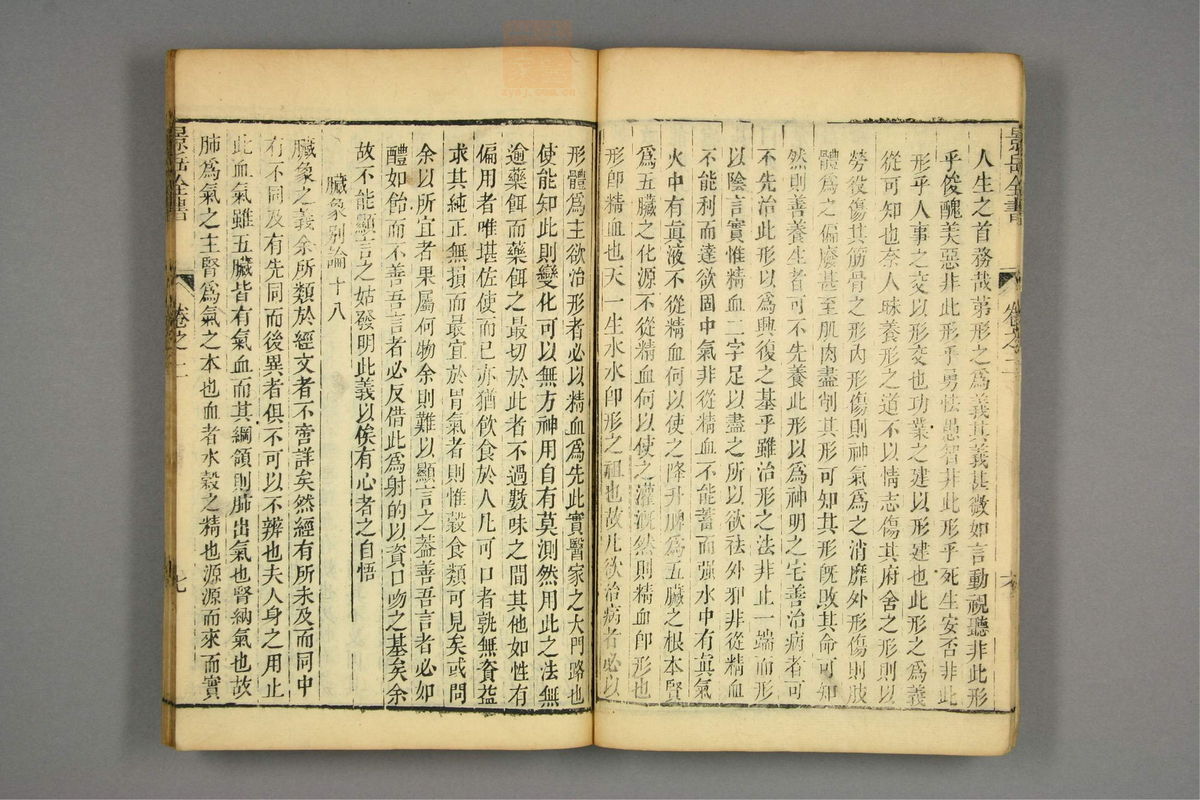 人生之首務哉第形之爲義其義甚微如言動視聽非此形
乎俊醜美惡非此形乎勇怯愚智非此形乎死生安否非此
形乎人事之交以形交也功業之建以形建也此形之爲義
從可知也奈人昧養形之道不以情志傷其府舍之形則以
勞役傷其筋骨之形內形傷則神氣爲之消靡外形傷則肢
體爲之偏廢甚至肌肉盡削其形可知其形旣敗其命可知
然則善養生者可不先養此形以爲神明之宅善治病者可
不先治此形以爲興復之基乎雖治形之法非止一端而形
以陰言實惟精血二字足以盡之所以欲祛外邪非從精血
不能利而達欲固中氣非從精血不能蓄而强水中有眞氣
火中有眞液不從精血何以使之降升脾爲五臟之根本腎
爲五臟之化源不從精血何以使之灌漑然則精血卽形也
形卽精血也天一生水水卽形之祖也故凡欲治病者必以
景岳全書
卷之二
形體爲主欲治形者必以精血爲先此實醫家之大門路也
使能知此則變化可以無方神用自有莫測然用此之法無
逾藥餌而藥餌之最切於此者不過數味之間其他如性有
偏用者唯堪佐使而已亦猶飲食於人凡可口者孰無資益
求其純正無損而最宜於胃氣者則惟穀食類可見矣或問
余以所宜者果屬何物余則難以顯言之蓋善吾言者必如
醴如飴而不善吾言者必反借此爲射的以資口吻之基矣余
故不能顯言之姑發明此義以俟有心者之自悟
臟象別論十八
臟象之義余所類於經文者不啻詳矣然經有所未及而同中
有不同及有先同而後異者俱不可以不辨也夫人身之用止
此血氣雖五臟皆有氣血而其綱領則肺出氣也腎納氣也故
肺爲氣之主腎爲氣之本也血者水穀之精也源源而來而實
景岳全書
卷之二
七